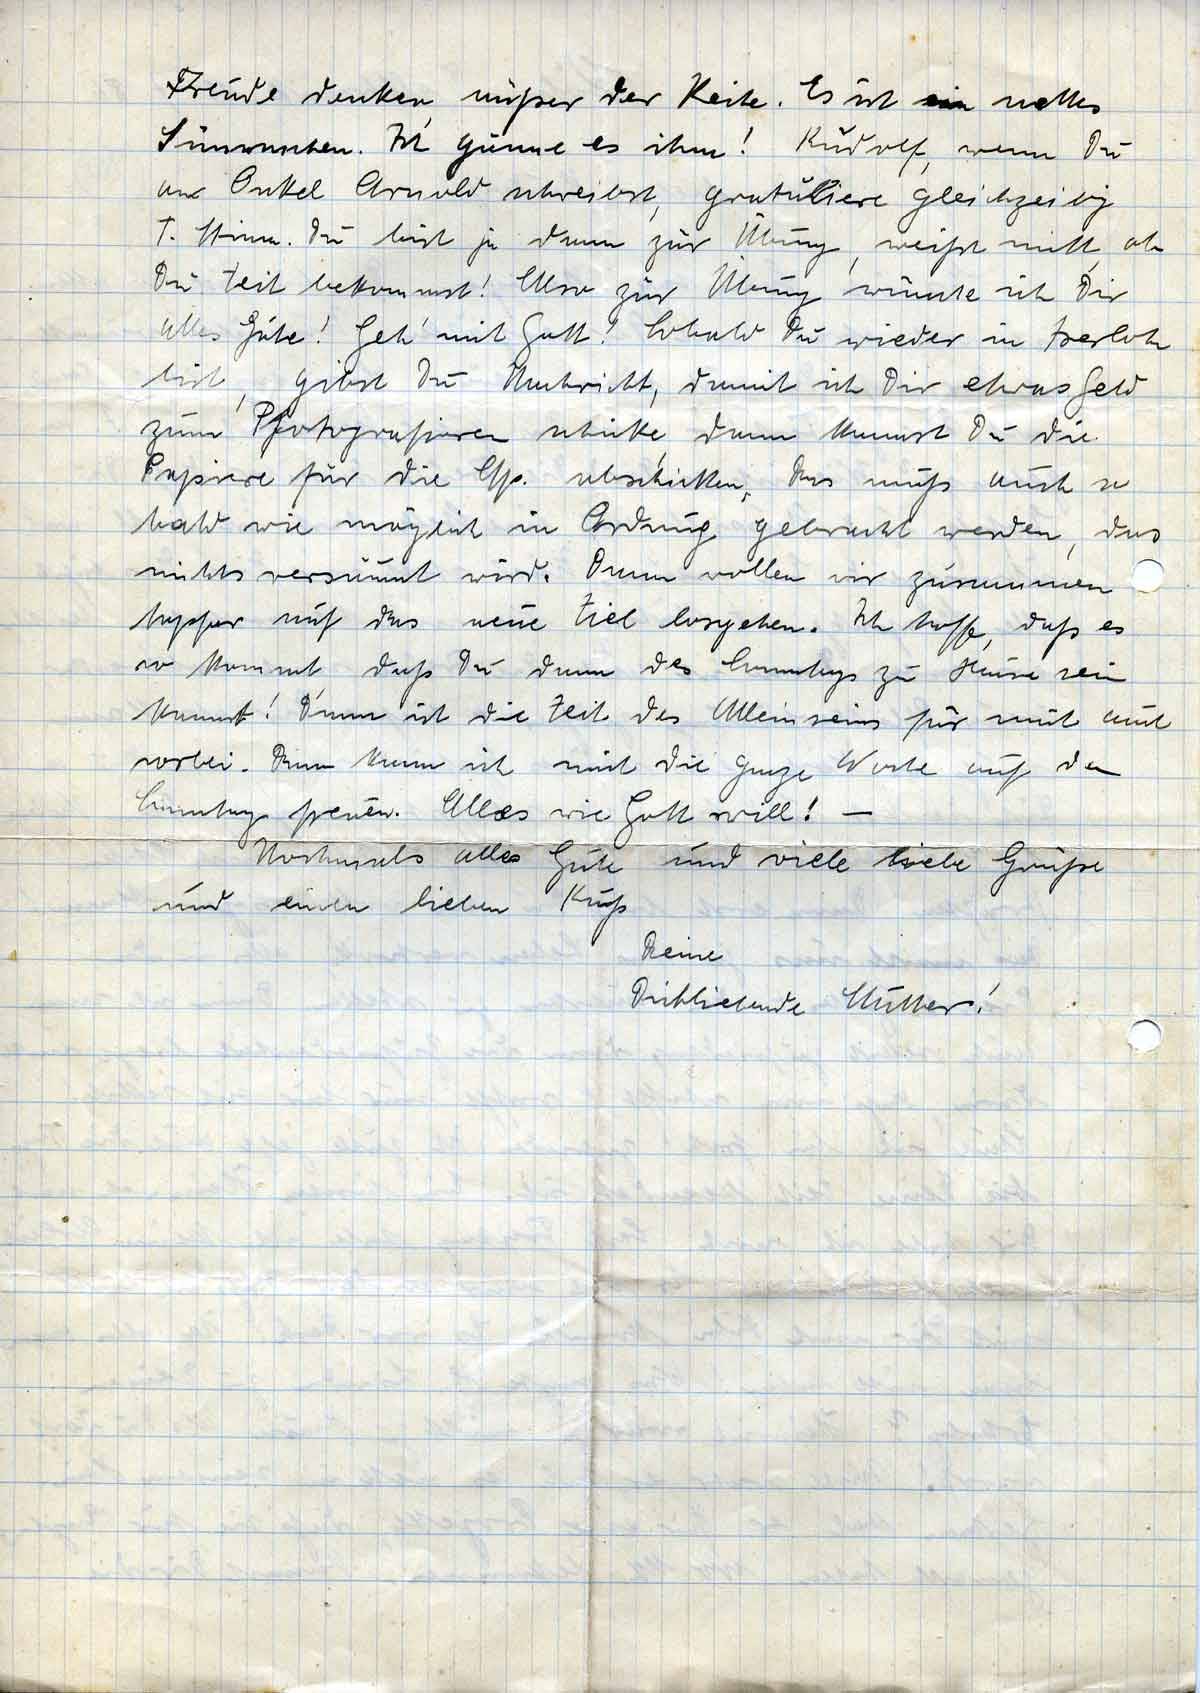 Freude denken, außer der Reihe. Es ist ein nettes
Ich gönne es ihm! Rudolf, wenn Du
an Onkel Arnold schreibst, gratuliere gleichzeitig
T. Du bist ja dann zur Übung, weißt nicht, ob
Du Zeit bekommst! Also zur Übung wünsche ich Dir
alles Gute! Geh' mit Gott! Sobald Du wieder in Iserlohn
bist, gibst Du Nachricht, damit ich Dir etwas Geld
zum Photografieren schicke, dann kannst Du die
Papiere für die abschicken, das muß auch so
bald wie möglich in Ordnung gebracht werden, das
nichts versäumt wird. Dann wollen wir zusammen
tapfer auf das neue Ziel losgehen. Ich hoffe, daß es
so kommt, daß Du dann des Sonntags zu Hause sein
kannst! Dann ist die Zeit des Alleinseins für mich auch
vorbei. Dann kann ich mich die ganze Woche auf den
Sonntag freuen. Alles wie Gott will! —
Nochmals alles Gute und viele liebe Grüße
und einen lieben Kuß
Deine
Dichliebende Mutter!